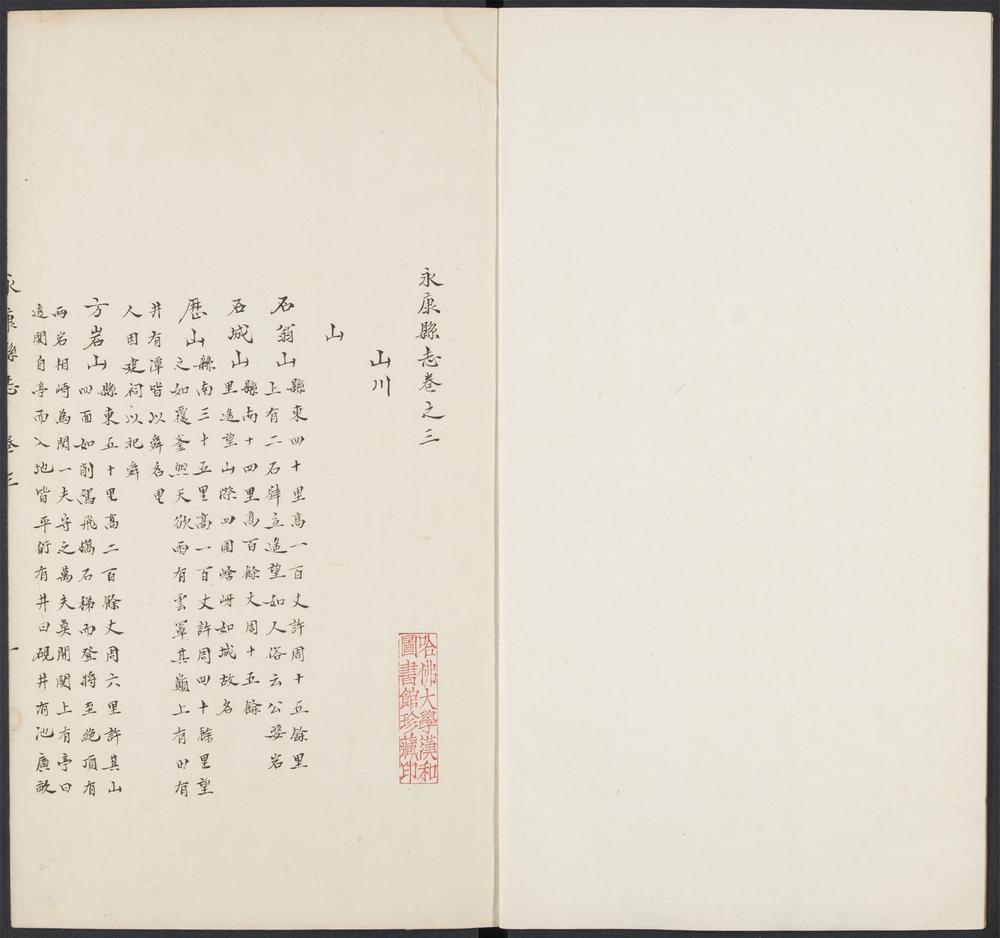 永康縣志卷之三
山川
山
石翁山縣東四十里高一百丈許周十五餘里
上有二石壁立遙望如人俗云公婆岩
石城山縣南十四里高百餘丈周十五餘
里遙望山際四圍㟏岈如城故名
歷山縣南三十五里高一百丈許周四十餘里望
之如覆釜然天欲雨有雲罩其巔上有田有
井有潭皆以舜名里
人因建祠以祀舜
方岩山縣東五十里高二百餘丈周六里許其山
四面如削駕飛橋石梯而登將至絕頂有
兩岩相峙為関一夫守之萬夫莫開関上有亭曰
透関自亭而入地皆平衍有井曰硯井有池廣畝
永康縣志 卷三 一
哈佛大學漢和
圖書館珍藏印